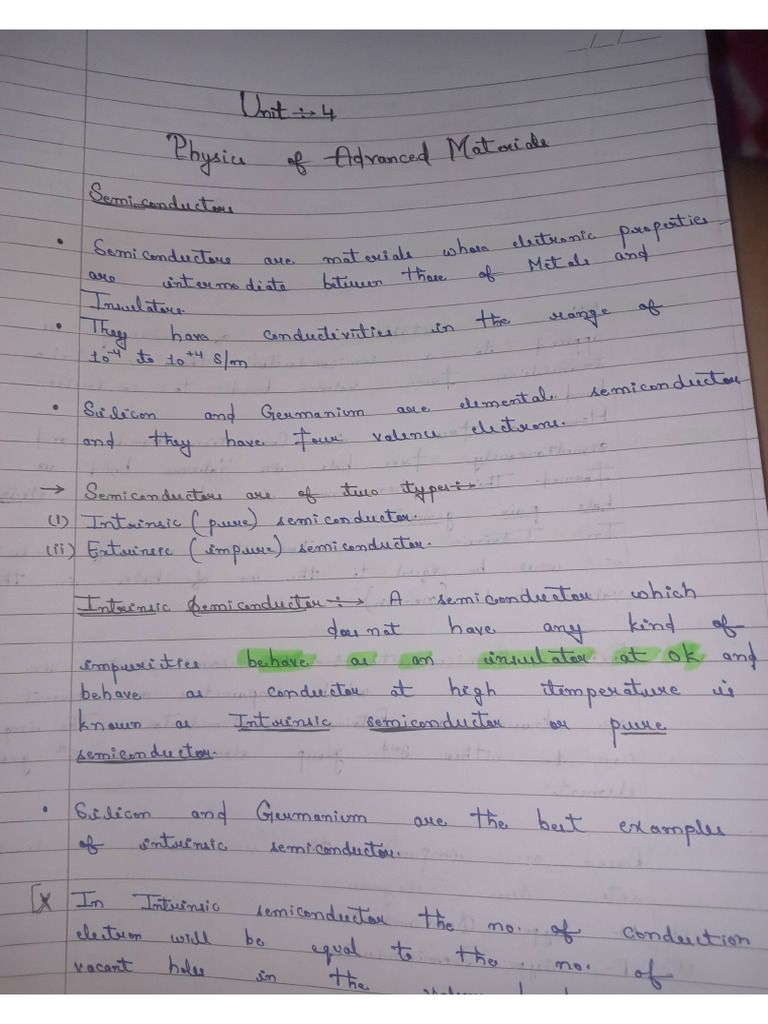 Unit :- 4
Physics of Advanced Materials
Semiconductors
• Semiconductors are materials whose electronic properties
are intermediate between those of Metals and
Insulators.
• They have conductivities in the range of
10⁻⁴ to 10⁺⁴ S/m
• Silicon and Germanium are elemental semiconductor
and they have four valence electrons.
→ Semiconductors are of two types:-
(i) Intrinsic (pure) semiconductor.
(ii) Extrinsic (impure) semiconductor.
Intrinsic Semiconductor :-> A semiconductor which
does not have any kind of
impurities behave as an insulator at 0K and
behave as conductor at high temperature is
known as Intrinsic semiconductor or pure
semiconductor.
• Silicon and Germanium are the best examples
of intrinsic semiconductor.
[x In Intrinsic semiconductor the no. of conduction
electron will be equal to the no. of
vacant holes in the